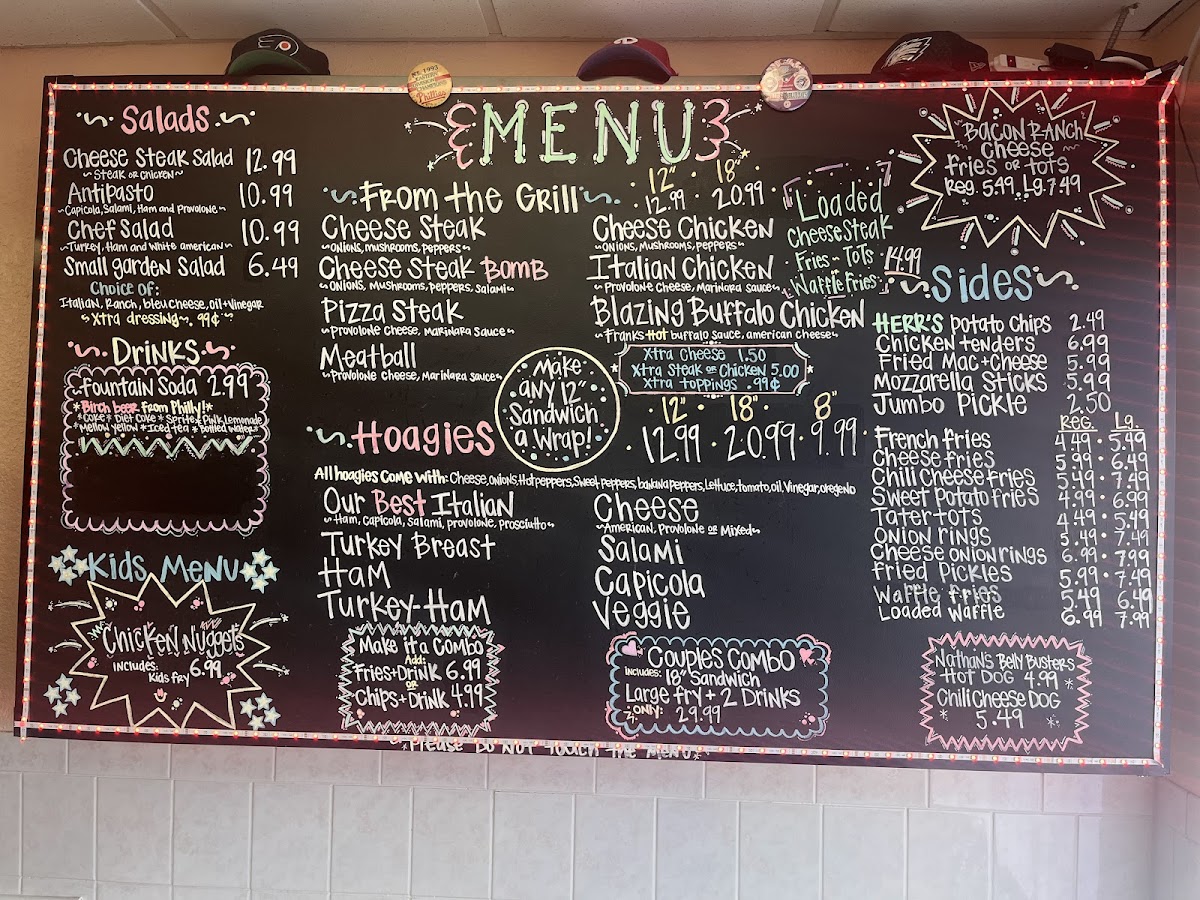 MENU
Salads
Cheese Steak Salad 12.99
~Steak or Chicken~
Antipasto 10.99
~Capicola, Salami, Ham and Provolone~
Chef Salad 10.99
~Turkey, Ham and White american~
Small garden Salad 6.49
Choice of:
Italian, Ranch, bleu cheese, oil+vinegar
~Xtra dressing~ .99¢
Drinks
Fountain Soda 2.99
*Birch beer From Philly!*
*Coke*Diet Coke*Sprite*Pink lemonade
*Mellow Yellow*Iced tea*Bottled Water*
Kids Menu
Chicken Nuggets
includes: 6.99
Kids fry
From the Grill
12" 18"
12.99 20.99
Cheese Steak
~Onions, mushrooms, peppers~
Cheese Steak BOMB
~Onions, Mushrooms, peppers, Salami~
Pizza Steak
~Provolone Cheese, Marinara Sauce~
Meatball
~Provolone Cheese, Marinara Sauce~
Cheese Chicken
~Onions, Mushrooms, Peppers~
Italian Chicken
~Provolone Cheese, Marinara Sauce~
Blazing Buffalo Chicken
~Franks Hot buffalo Sauce, american Cheese~
Xtra Cheese 1.50
Xtra Steak or Chicken 5.00
Xtra toppings .99¢
Make
any 12"
Sandwich
a Wrap!
Hoagies
12" 18" 8"
12.99 20.99 9.99
All hoagies Come with: Cheese, onions, Hot peppers, Sweet peppers, banana peppers, Lettuce, tomato, oil, Vinegar, oregeno
Our Best Italian
~Ham, Capicola, Salami, provolone, prosciutto~
Turkey Breast
Ham
Turkey-Ham
Cheese
~American, Provolone or Mixed~
Salami
Capicola
Veggie
Make it a Combo
Add:
Fries+Drink 6.99
or
Chips+Drink 4.99
Couples Combo
includes: 18" Sandwich
Large fry + 2 Drinks
~only:
29.99
Loaded
Cheese Steak
Fries ~ Tots 14.99
Waffle Fries
Bacon Ranch
Cheese
fries or tots
Reg. 5.49, Lg. 7.49
Sides
HERR'S Potato Chips 2.49
Chicken tenders 6.99
Fried Mac+Cheese 5.99
Mozzarella Sticks 5.99
Jumbo Pickle 2.50
Reg. Lg.
French fries 4.49 5.49
Cheese fries 5.99 6.49
Chili Cheese fries 5.49 7.49
Sweet Potato fries 4.99 6.99
Tater tots 4.49 5.49
Onion rings 5.49 7.49
Cheese onion rings 6.99 7.99
Fried Pickles 5.99 7.49
Waffle fries 5.49 6.49
Loaded Waffle 6.99 7.99
Nathan's Belly Busters
Hot Dog 4.99
Chili Cheese Dog
5.49
*Please Do Not Touch the Menu*